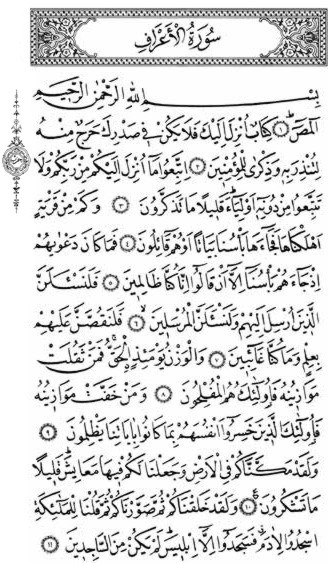 سُورَةُ الْأَعْرَافِ
بِسْمِ اللّٰهِ الرَّحْمٰنِ الرَّحِيمِ
الٓمٓصٓ ﴿١﴾ كِتَابٌ اُنْزِلَ اِلَيْكَ فَلَا يَكُنْ فِي صَدْرِكَ حَرَجٌ مِنْهُ
لِتُنْذِرَ بِهِ وَذِكْرٰى لِلْمُؤْمِنِينَ ﴿٢﴾ اِتَّبِعُوا مَا اُنْزِلَ اِلَيْكُمْ مِنْ رَبِّكُمْ وَلَا
تَتَّبِعُوا مِنْ دُونِهِ اَوْلِيَاءَ قَلِيلًا مَا تَذَكَّرُونَ ﴿٣﴾ وَكَمْ مِنْ قَرْيَةٍ
اَهْلَكْنَاهَا فَجَاءَهَا بَأْسُنَا بَيَاتًا اَوْ هُمْ قَائِلُونَ ﴿٤﴾ فَمَا كَانَ دَعْوٰيهُمْ
اِذْ جَاءَهُمْ بَأْسُنَا اِلَّا اَنْ قَالُوا اِنَّا كُنَّا ظَالِمِينَ ﴿٥﴾ فَلَنَسْـَٔلَنَّ
الَّذِينَ اُرْسِلَ اِلَيْهِمْ وَلَنَسْـَٔلَنَّ الْمُرْسَلِينَ ﴿٦﴾ فَلَنَقُصَّنَّ عَلَيْهِمْ
بِعِلْمٍ وَمَا كُنَّا غَائِبِينَ ﴿٧﴾ وَالْوَزْنُ يَوْمَئِذٍ الْحَقُّ فَمَنْ ثَقُلَتْ
مَوَازِينُهُ فَاُولٰئِكَ هُمُ الْمُفْلِحُونَ ﴿٨﴾ وَمَنْ خَفَّتْ مَوَازِينُهُ
فَاُولٰئِكَ الَّذِينَ خَسِرُوا اَنْفُسَهُمْ بِمَا كَانُوا بِاٰيَاتِنَا يَظْلِمُونَ ﴿٩﴾
وَلَقَدْ مَكَّنَّاكُمْ فِي الْاَرْضِ وَجَعَلْنَا لَكُمْ فِيهَا مَعَايِشَ قَلِيلًا
مَا تَشْكُرُونَ ﴿١٠﴾ وَلَقَدْ خَلَقْنَاكُمْ ثُمَّ صَوَّرْنَاكُمْ ثُمَّ قُلْنَا لِلْمَلٰئِكَةِ
اسْجُدُوا لِاٰدَمَ فَسَجَدُوا اِلَّا اِبْلِيسَ لَمْ يَكُنْ مِنَ السَّاجِدِينَ ﴿١١﴾